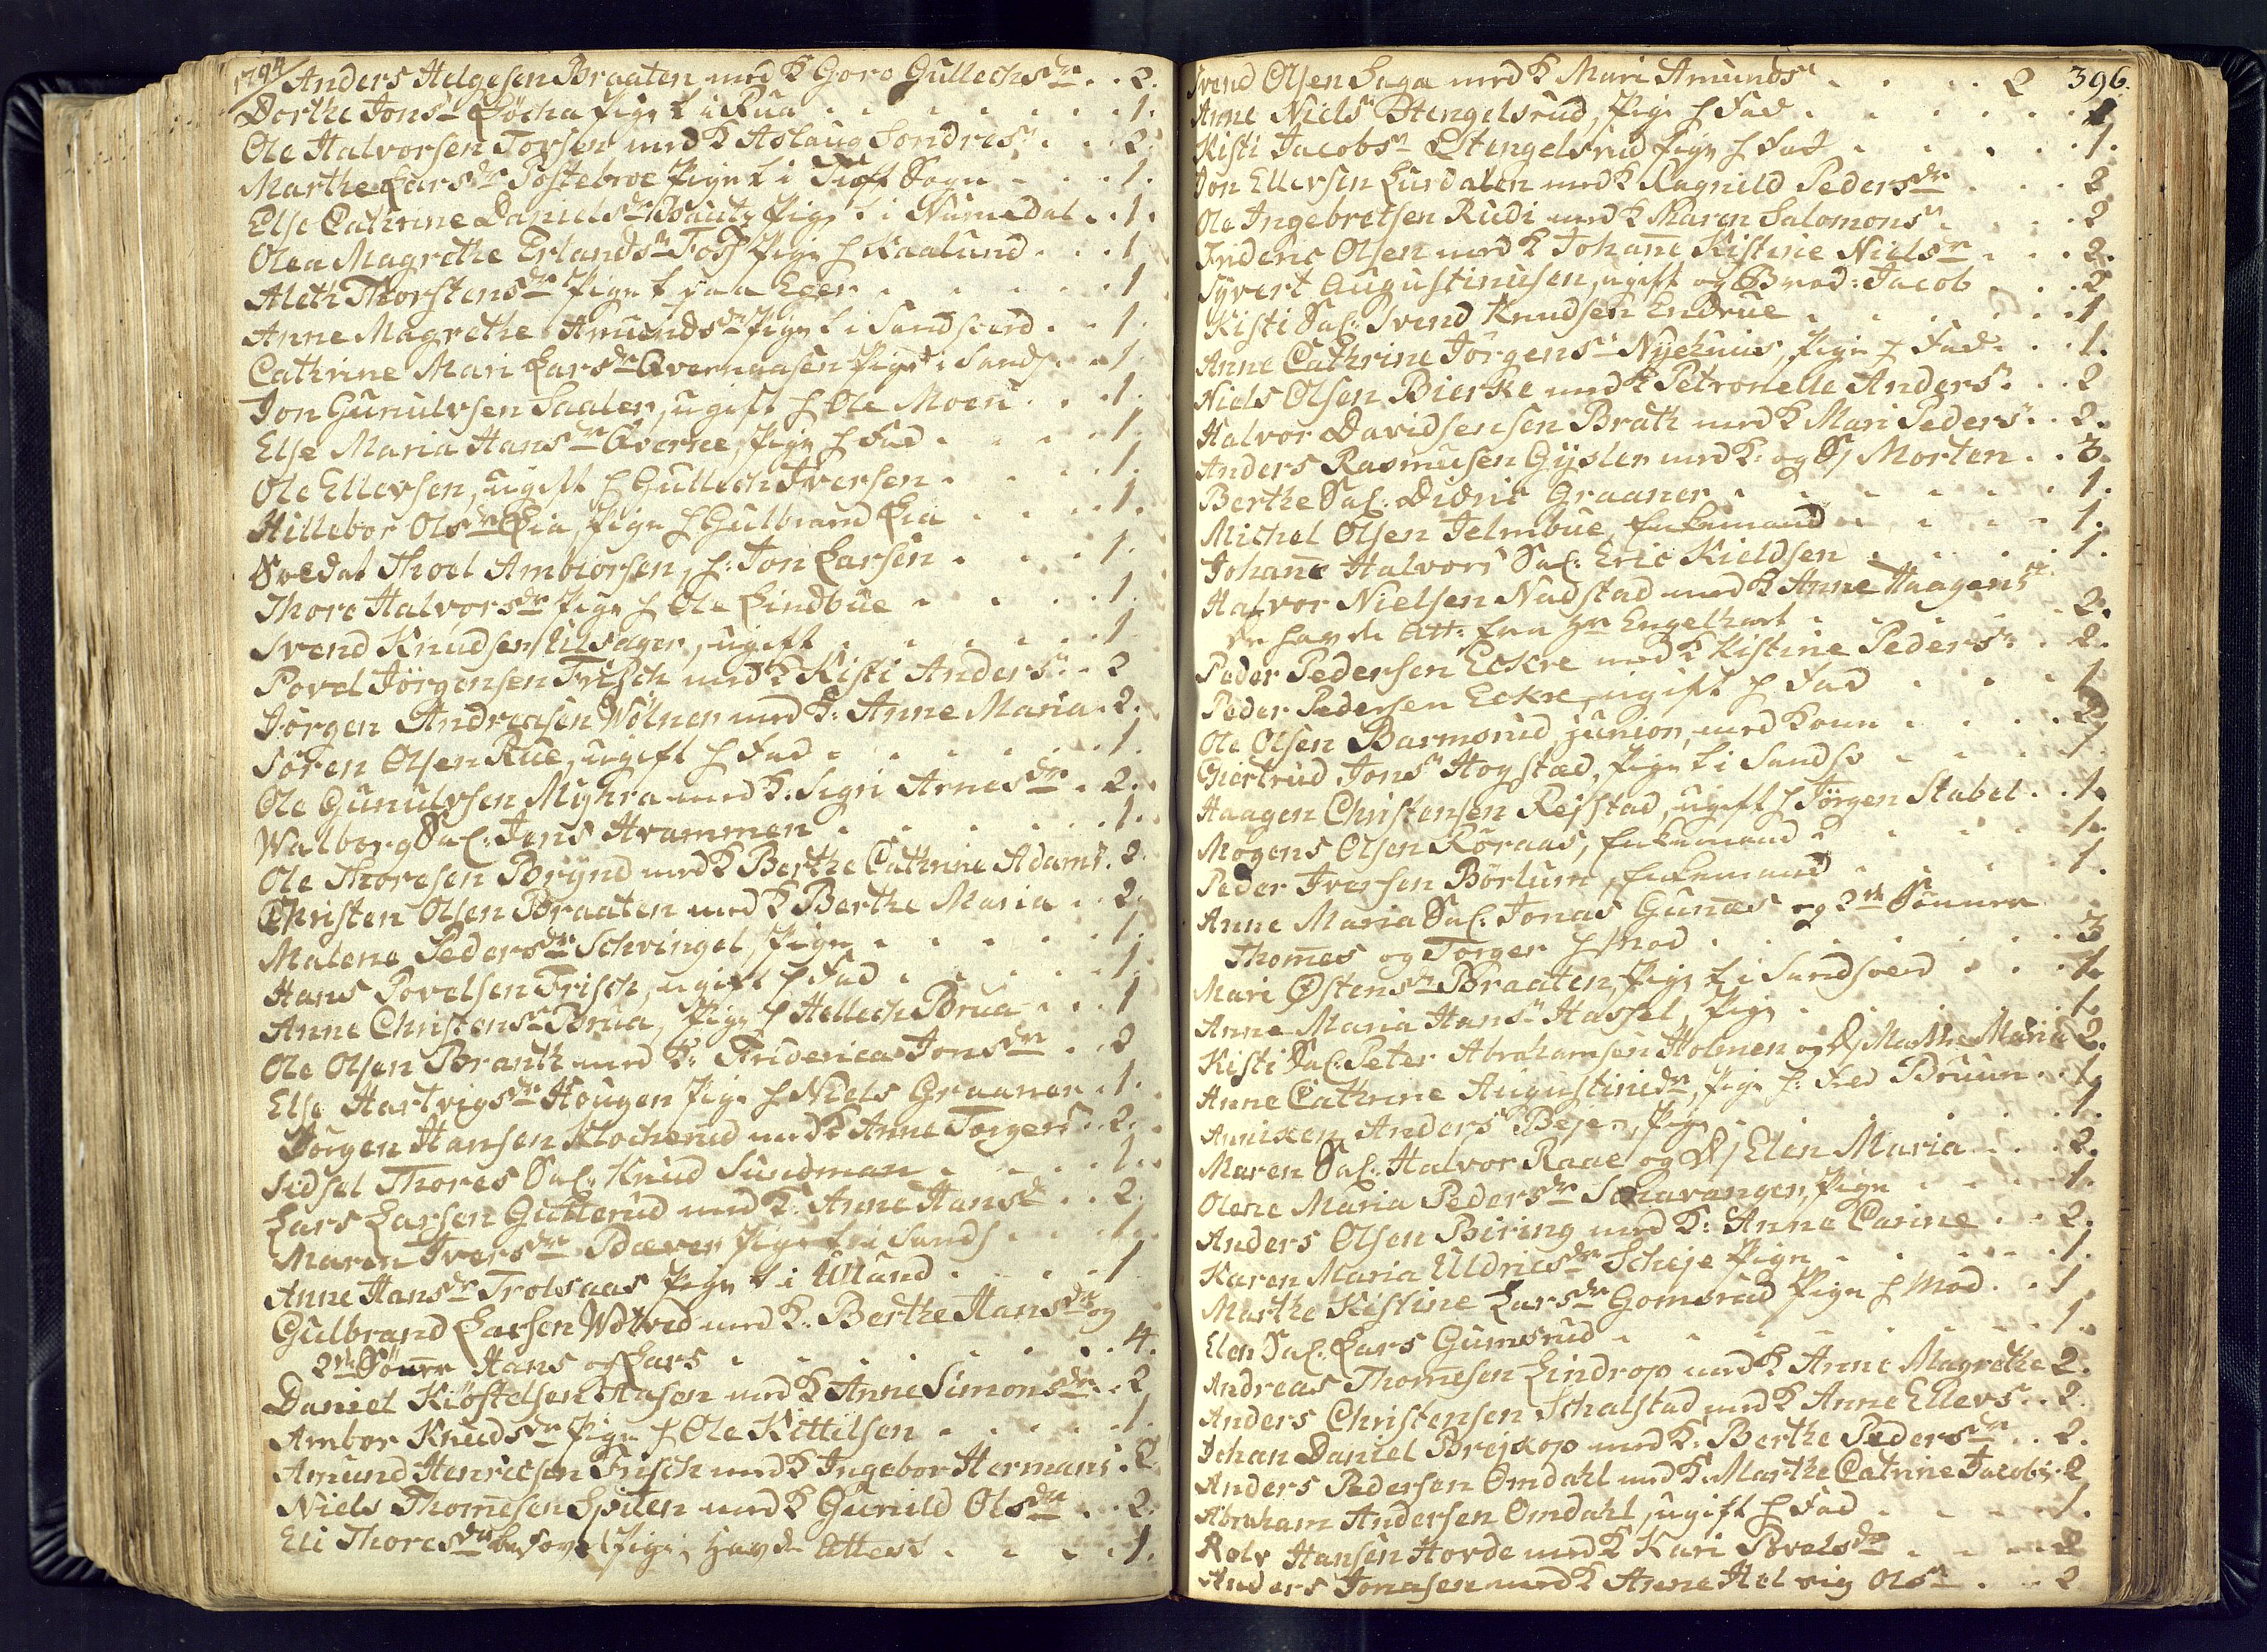 1794/
Anders Helgesen Braaten med K Goro Gullechsdr . . 2.
Dorthe Jonsdr Pige f i Rua . . . 1.
Ole Halvorsen Torsen med K Aslaug Sondresdr . . 2.
Marthe Larsdr Postebroe Pige f i Sogn . . 1.
Else Cathrine Danielsdr Pige f i Numedal . . 1.
Olea Magrethe Erlandsdr Foss Pige h Kaalund . . . 1
Aleth Thorstensdr Pige f paa Eger . . . 1
Anne Magrethe Amundsdr Pige f i Sandsverd . . 1.
Cathrine Mari Larsdr Qvernaasen Pige f i Sands. . . 1
Jon Gunulvsen Saaler, ugift h Ole Moen . . 1.
Else Maria Hansdr Qverne, Pige h Fad . . . 1.
Ole Ellevsen, ugift h Gullech Iversen . . . 1.
Hillebor Olsdr Lia, Pige h Gulbrand Lia . . . 1.
Soldat Thoel Ambiorsen, h: Jon Larsen . . . 1.
Thore Halvorsdr Pige h Ole Lindbue . . . 1.
Svend Knudsen Ulsager, ugift . . . 1
Povel Jörgensen Frisch med K Kisti Andersdr . . 2
Jörgen Andreasen Wölner med K: Anne Maria . 2.
Sören Olsen Rue, ugift h Fad . . . 1.
Ole Gunulvsen Myhra med K: Sigri Arnesdr . 2.
Walborg Sal: Jens Hvammen . . . 1.
Ole Thoresen Brynd med K Berthe Cathrine Adams . 2.
Christen Olsen Braaten med K Berthe Maria . . 2.
Malene Pedersdr Schvingel, Pige . . . 1.
Hans Povelsen Frisch, ugift h Fad . . . 1.
Anne Christensdr Brua, Pige h Hellech Brua . . . 1
Ole Olsen Branth med K: Friderica Jonsdr . . 2
Else Hartvigsdr Hougen Pige h Niels Graaner . 1.
Jörgen Hansen Klocherud med K Anne Torgers . . 2.
Sidsel Thores Sal: Knud Sundman . . . 1.
Lars Larsen Gutterud med K: Anne Hansd . . 2.
Maren Iversdr Bæver Pige f i Sands . . . 1.
Anne Hansdr Trolsaas Pige f i Ulland . . . 1
Gulbrand Larsen Wolved med K: Berthe Hansdr og
2de Sönner Hans og Lars . . . 4.
Daniel Kiöstelsen Aasen med K Anne Simonsdr . . 2
Ambor Knudsdr Pige h Ole Kittilsen . . . 1.
Amund Henricsen Frisch med K Ingebor Hermans . 2
Niels Thomesen Spiten med K Gunild Olsdr . . 2.
Eli Thoresdr Pige, havde Attest . . . 1.
396.
Svend Olsen Saga med K Mari Amunds . . . 2
Anne Niels Stengelsrud, Pige h Fad . . . 1
Kisti Jacobsdr Stengelsrud Pige h Fad . . . 1.
Jon Ellevsen Lurdalen med K Ragnild Pedersdr . . . 2
Ole Ingebretsen Rudi med K Maren Salomons . . . 2
Frideric Olsen med K Johane Kistine Nielsdr . . . 2.
Syvert Augustinusen, ugift og Brod: Jacob . . 2
Kisti Sal: Svend Knudsen Endrue . . . 1
Anne Cathrine Jörgensdr Nyehuus, Pige h Fad . . . 1.
Niels Olsen Bierke med K Petronelle Anders . . . 2
Halvor Davidsensen Brath med K Mari Peders . . 2.
Anders Rasmusen Gysler med K: og S/ Morten . . 3.
Berthe Sal: Didric Graaner . . . 1.
Michel Olsen Jelmbue, Enkemand . . . 1.
Johane Halvors Sal: Eric Kieldsen . . . 1.
Halvor Nielsen Nadstad med K Anne Haagens
de havde Att: fra Hr Engelhart . . . 2.
Peder Pedersen Eckre med K Kistine Peders . 2.
Peder Pedersen Eckre, ugift h Fad . . . 1
Ole Olsen Barmsrud junior, med Kone . . . 2
Giertrud Jons Hogstad, Pige f i Sandsv . . . 1
Haagen Christensen Rejstad, ugift h Jörgen Stabel . . 1.
Mogens Olsen Röraas, Enkemand . . . 1.
Peder Iversen Börlum, Enkemand . . . 1.
Anne Maria Sal: Jonas Gunæs og 2de Sönner
Thomes og Torger h Mod . . . 3
Mari Östensdr Braaten, Pige f i Sandsverd . . . 1.
Anne Maria Hans Hassel, Pige . . . 1.
Kisti Sal: Peter Abrahamsen Holmen og D/ Marthe Maria 2.
Anne Cathrine Augustinidr, Pige h: Fred Bruun . . 1.
Anniken Anders Bejer, Pige . . . 1.
Maren Sal: Halvor Raae og D/ Elen Maria . . . 2.
Olene Maria Pedersdr Schavangen, Pige . . . 1.
Anders Olsen Biring med K: Anne Carine . . 2.
Karen Maria Uldricsdr Scheje Pige . . . 1.
Marthe Kistine Larsdr Gomsrud Pige h Mod . . . 1
Elen Sal: Lars Gumsrud . . . 1
Andreas Thomesen Lindrop med K Anne Magrethe 2.
Anders Christensen Schalstad med K Anne Ellevs . . 2.
Johan Daniel Brejkop med K: Berthe Pedersdr . . 2.
Anders Pedersen Omdahl med K. Marthe Catrine Jacobs . 2
Abraham Andersen Omdahl, ugift h Fad . . . 1.
Rolv Hansen Hovde med K Kari Povelsdr . . . 2
Anders Jonasen med K Anne Helvig Olsdr . . . 2